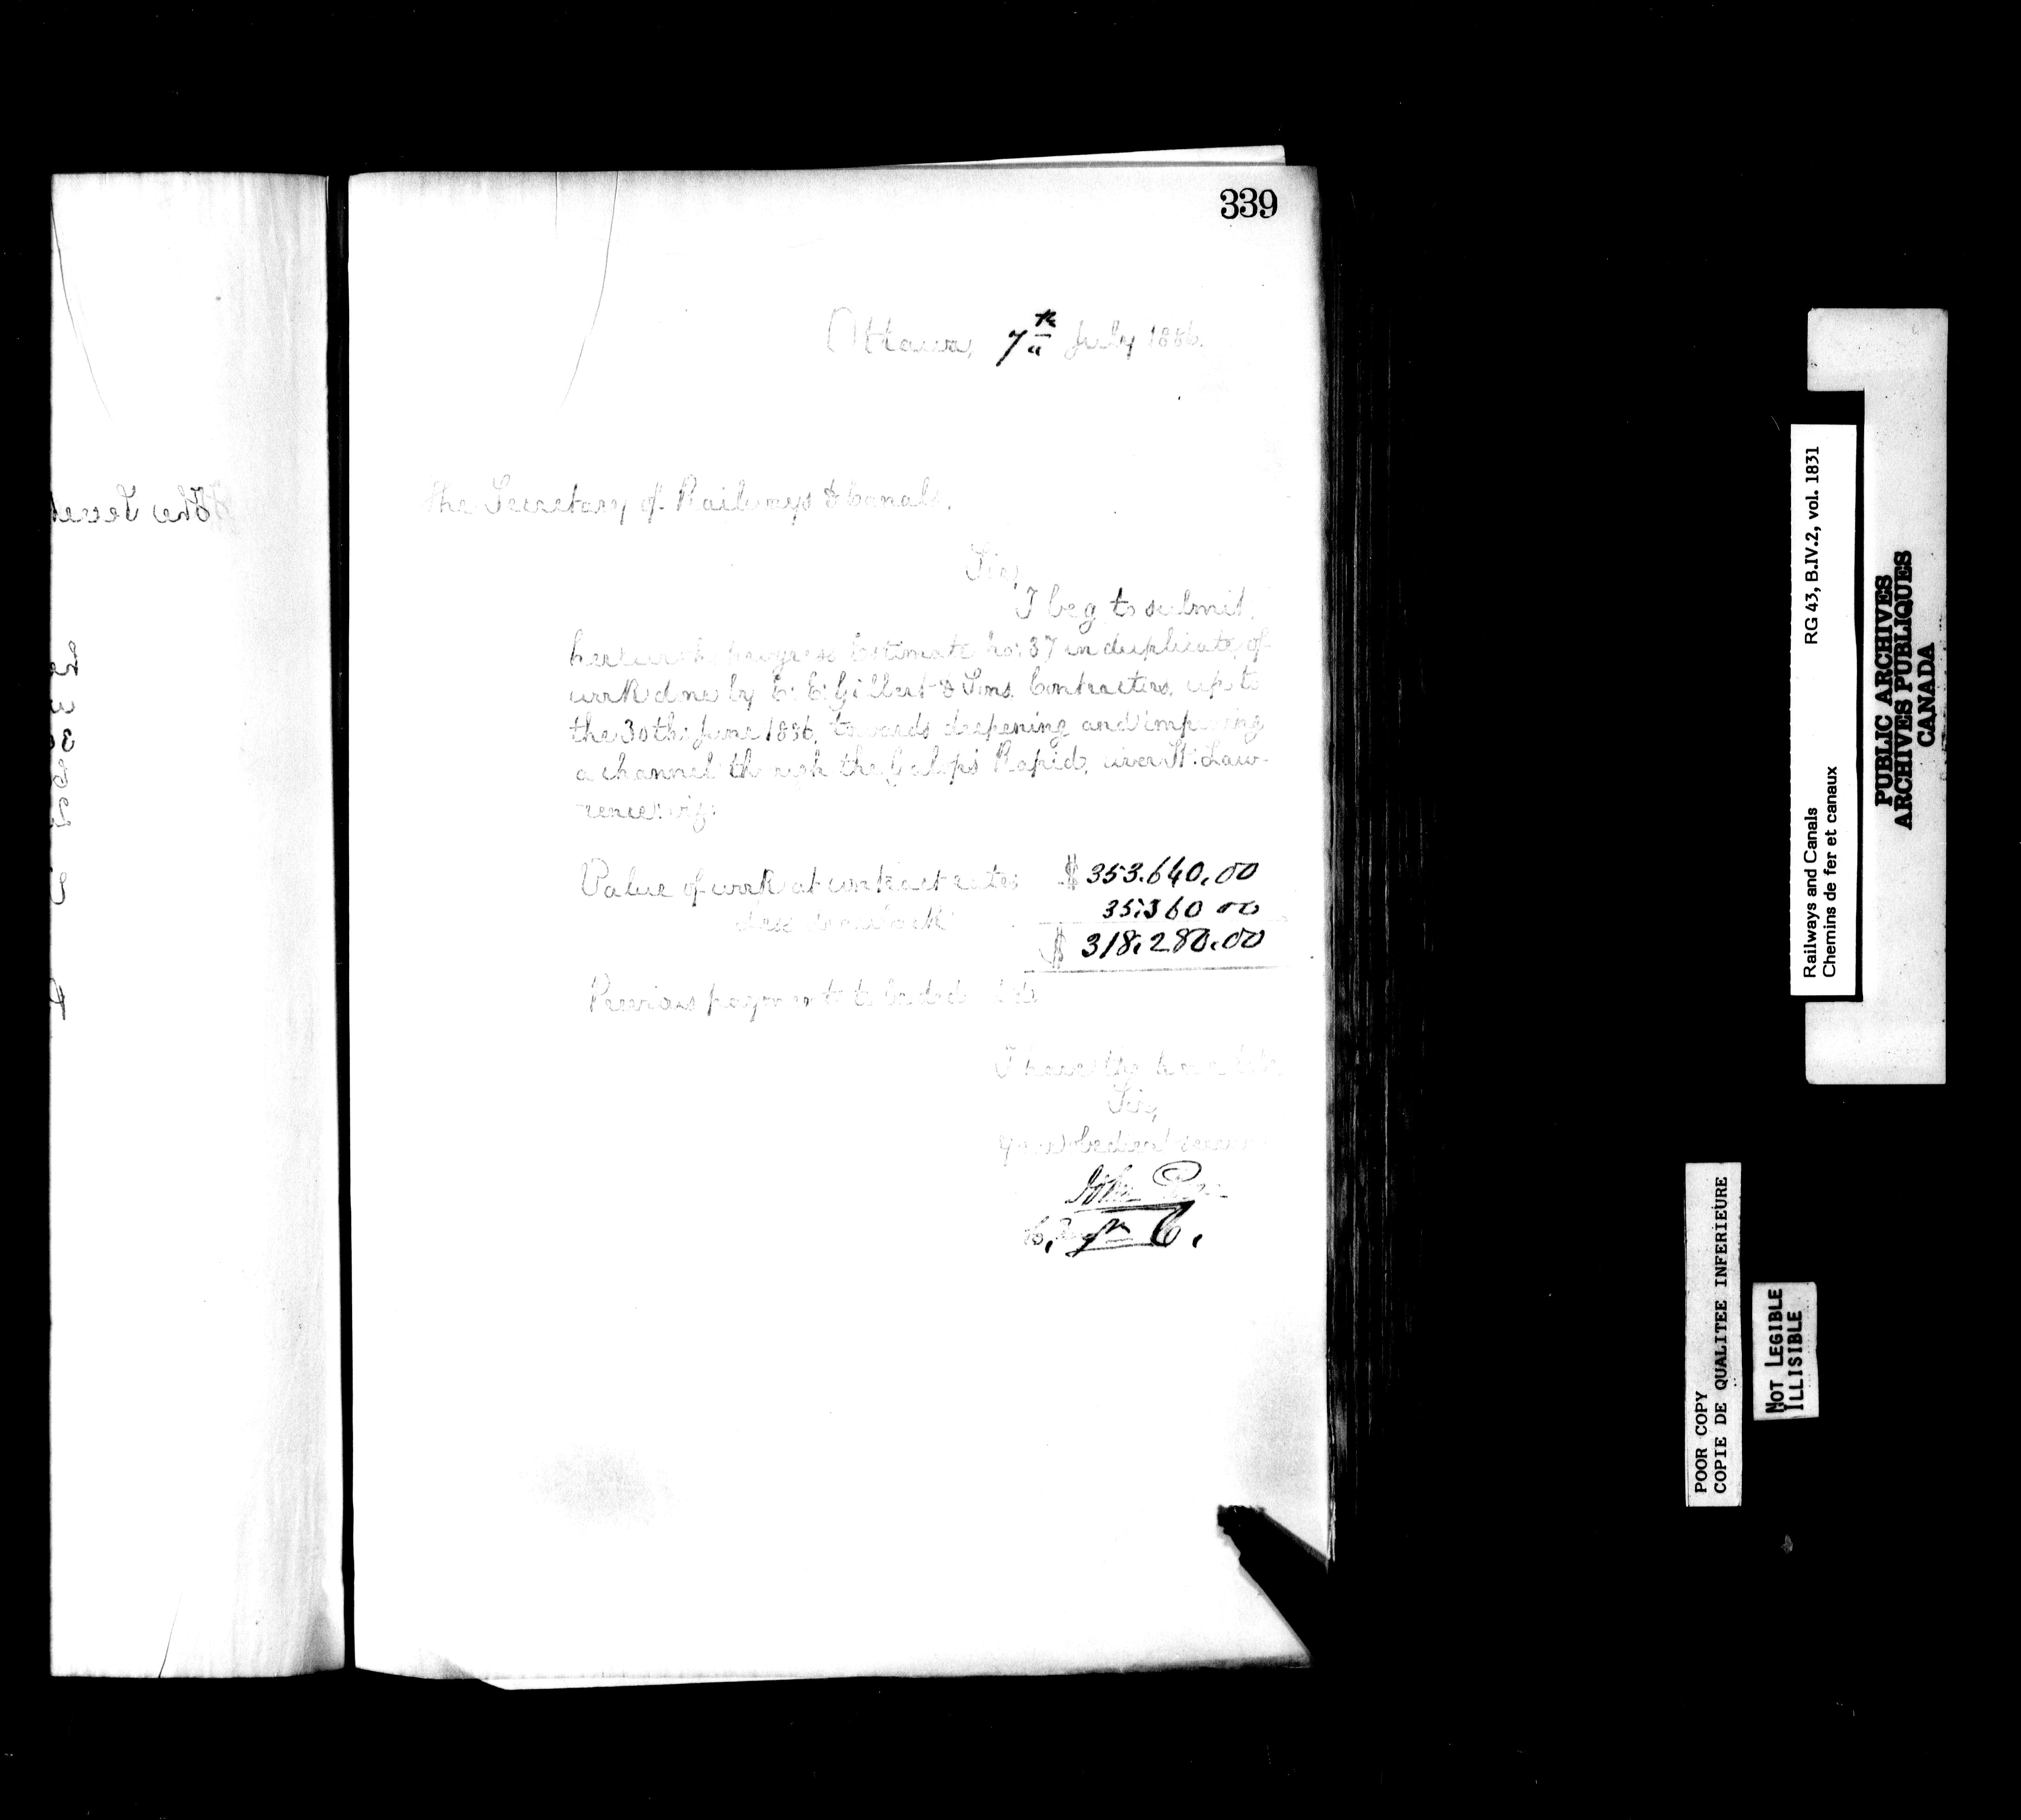 339
Ottawa, 7th July 1886.
The Secretary of Railways & Canals.
Sir,
I beg to submit,
herewith progress Estimate No: 37 in duplicate, of
work done by E. E. Gilbert & Sons Contractors, up to
the 30th June 1886, towards deepening and improving
a channel through the Galops Rapids, river St. Law-
rence: viz:
Value of work at contract rates $ 353.640.00
less drawback 35.360 00
$ 318.280.00
Previous payments to be deducted
I have the honor to be
Sir,
Your obedient servant
John Page
C.
The Secret
RG 43, B.IV.2, vol. 1831
Railways and Canals
Chemins de fer et canaux
PUBLIC ARCHIVES
ARCHIVES PUBLIQUES
CANADA
POOR COPY
COPIE DE QUALITEE INFERIEURE
NOT LEGIBLE
ILLISIBLE